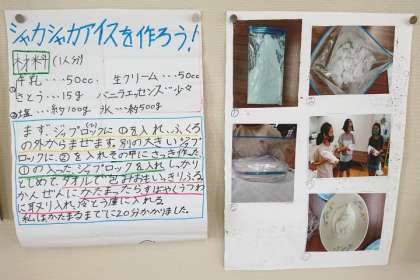 シャカシャカアイスを作ろう!
材料(1人分)
①牛乳・・・50cc 生クリーム・・・50cc
さとう・・・15g バニラエッセンス・・少々
②塩・・・約100g 氷・・・約500g
まず、ジップロックに①を入れ、ふくろ
の外からまぜます。別の大きいジップ
ロックに、②を入れその中にさっき作った
①の入ったジップロックを入れ、しっかり
とじめて、タオルで
かんぜんにかたまったらすばやくうつわ
に取り入れ、冷とう庫に入れる。
私はかたまるまでに20分かかりました。
①
②
③
④
⑤